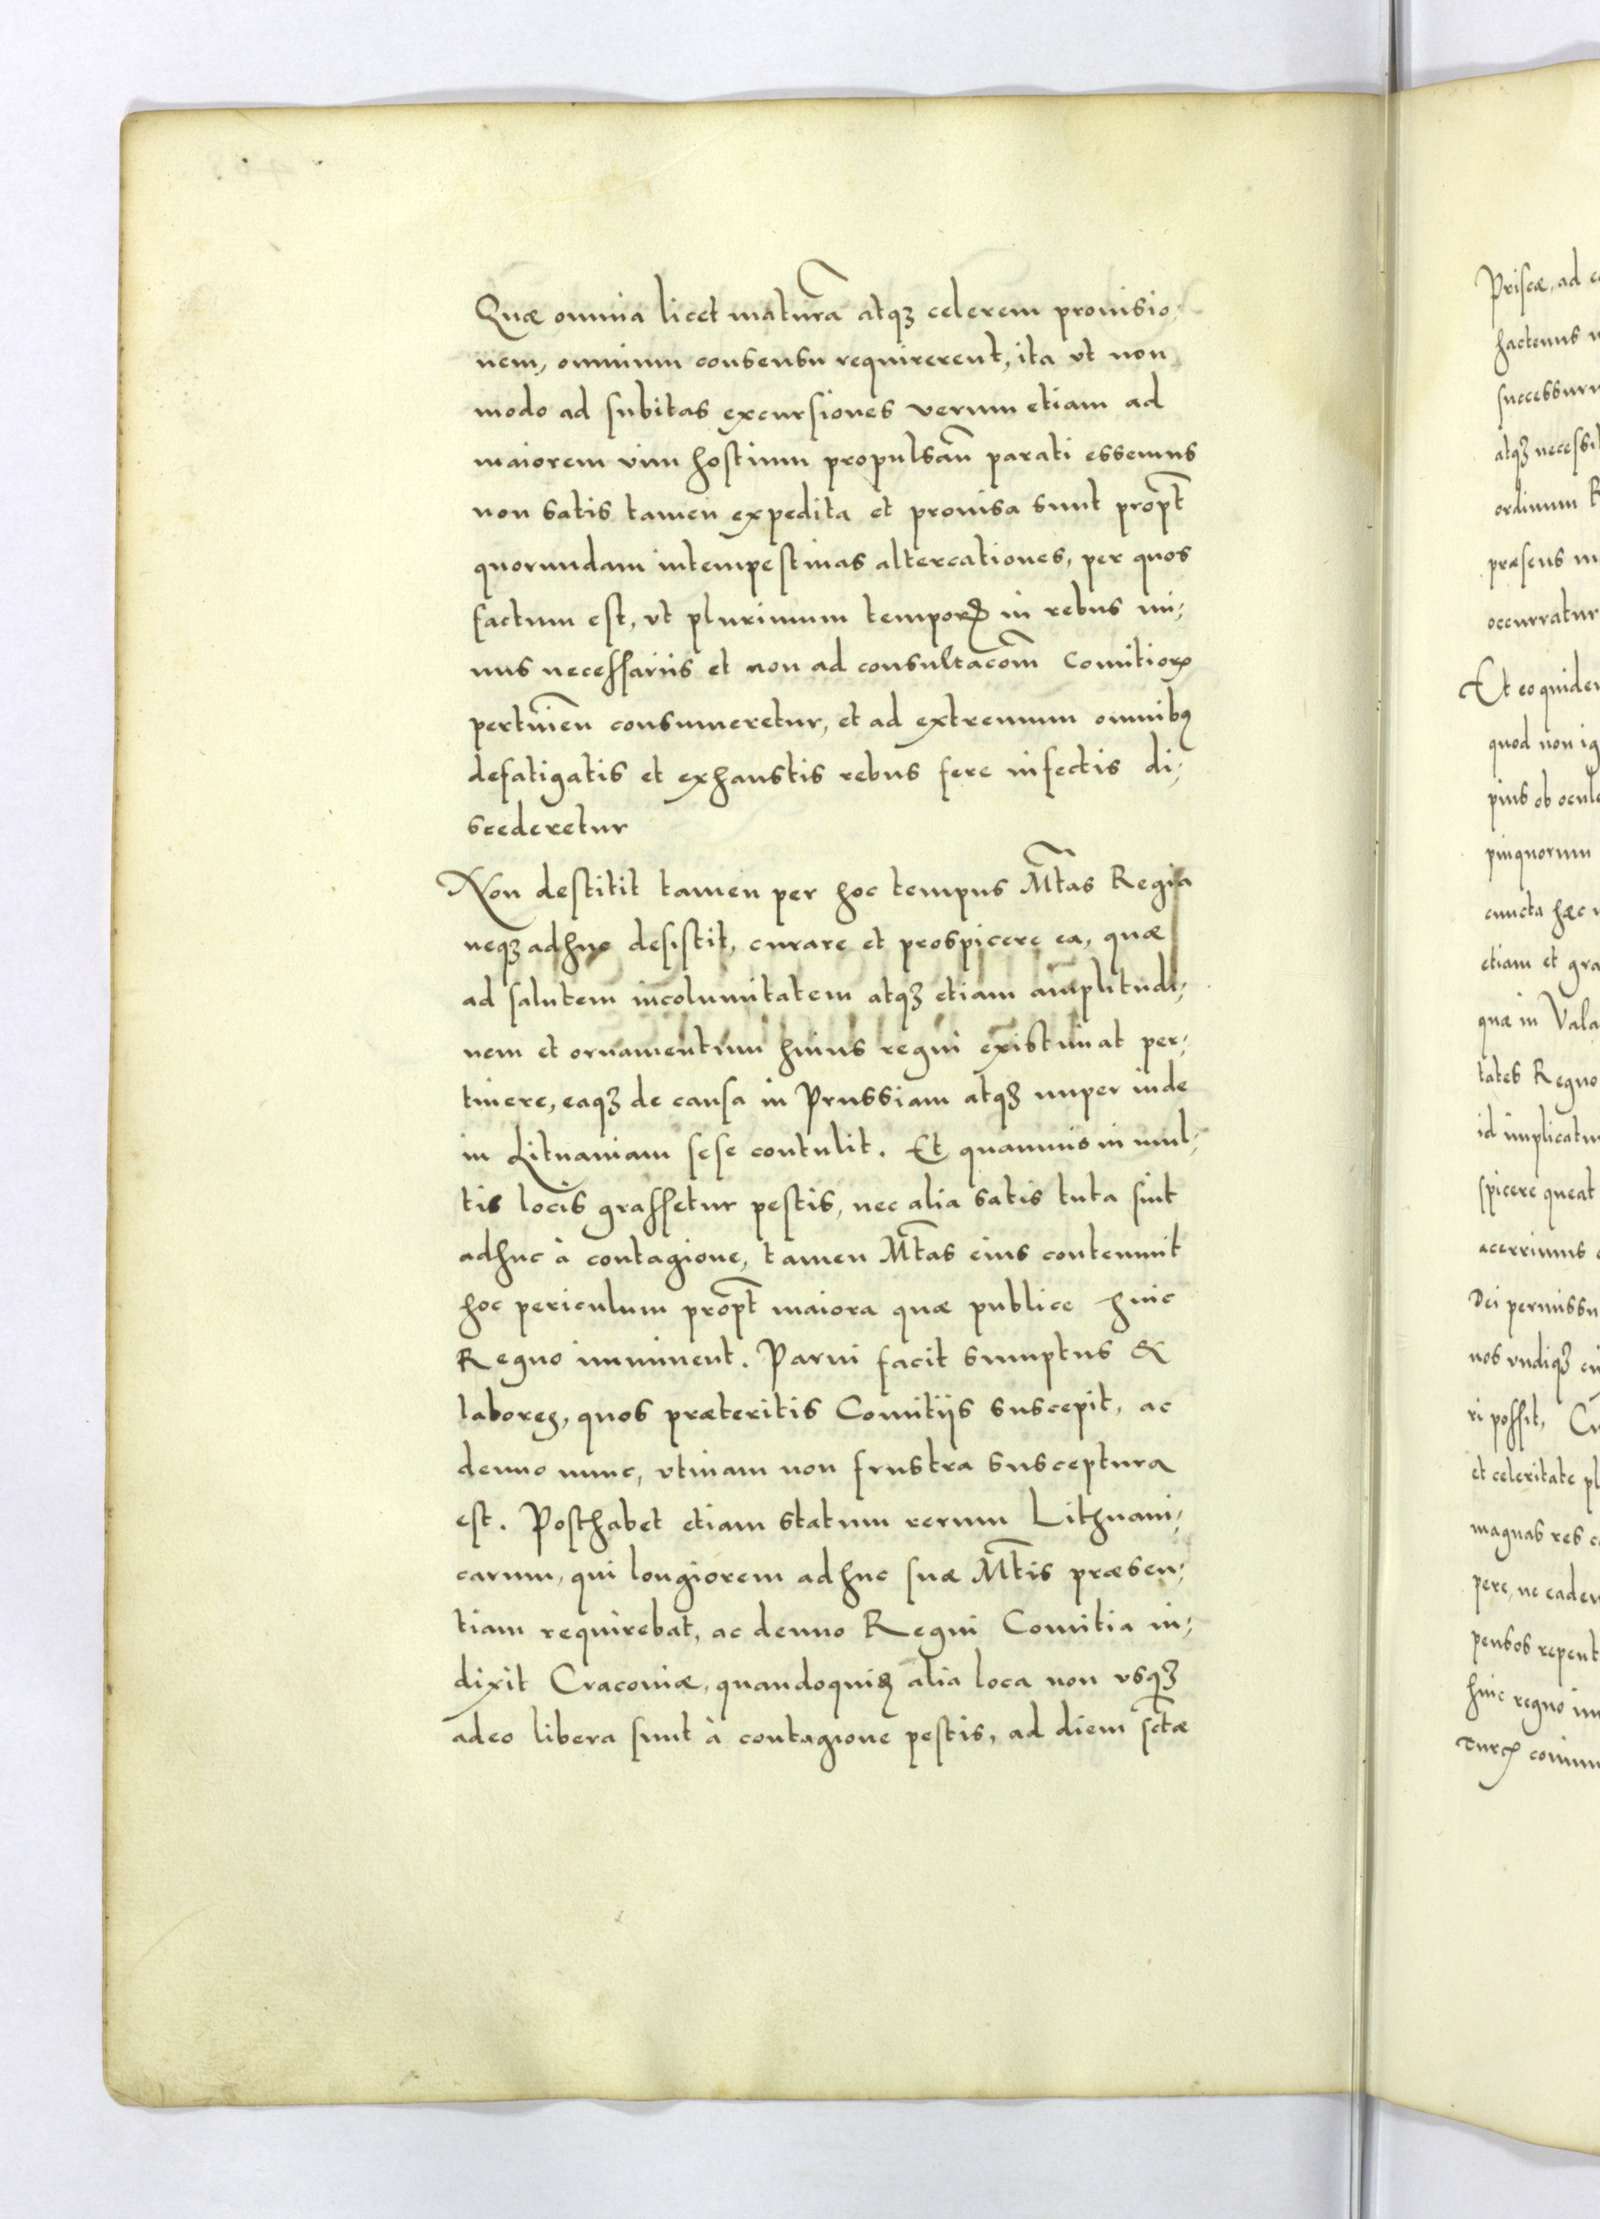 Quæ omnia licet maturã atqꝫ celerem prouisio-
nem, omnium consensu requirerent, ita vt non
modo ad subitas excursiones verum etiam ad
maiorem vim hostium propulsañ parati essemus
non satis tamen expedita et prouisa sunt propt̃
quorundam intempestiuas altercationes, per quos
factum est, vt plurimum temporꝭ in rebus mi-
nus necessariis et non ad consultacõm Comitiorꝝ
pertineñ consumeretur, et ad extremum omnibꝰ
defatigatis et exhaustis rebus fere infectis di-
scederetur
Non destitit tamen per hoc tempus Mt̃as Regia
neqꝫ adhuc desistit, curare et prospicere ea, quæ
ad salutem incolumitatem atqꝫ etiam amplitudi-
nem et ornamentum huius regni existimat per-
tinere, eaqꝫ de causa in Prussiam atqꝫ nuper inde
in Lituaniam sese contulit. Et quamuis in mul-
tis locis grassetur pestis, nec alia satis tuta sint
adhuc à contagione, tamen Mt̃as eius contemnit
hoc periculum propt̃ maiora quæ publice huic
Regno imminent. Parui facit sumptus &
labores, quos præteritis Comitiis suscepit, ac
denuo nunc, vtinam non frustra susceptura
est. Posthabet etiam statum rerum Lithuani-
carum, qui longiorem adhuc suæ Mt̃is præsen-
tiam requirebat, ac denuo Regni Comitia in-
dixit Cracouiæ, quandoquiꝫ alia loca non vsqꝫ
adeo libera sunt à contagione pestis, ad diem sc̃tæ
Priscæ, ad
hactenus
atqꝫ
ordinum
præsens
occurratur
Et eo
quod non
pius ob
pinquorum
cuncta hæc
etiam et
quæ in
tates Regno
id
spicere queat
acerrimus
Dei permissu
nos vndiqꝫ
ri possit,
et celeritate
magnas res
pere, ne
repent
huic regno